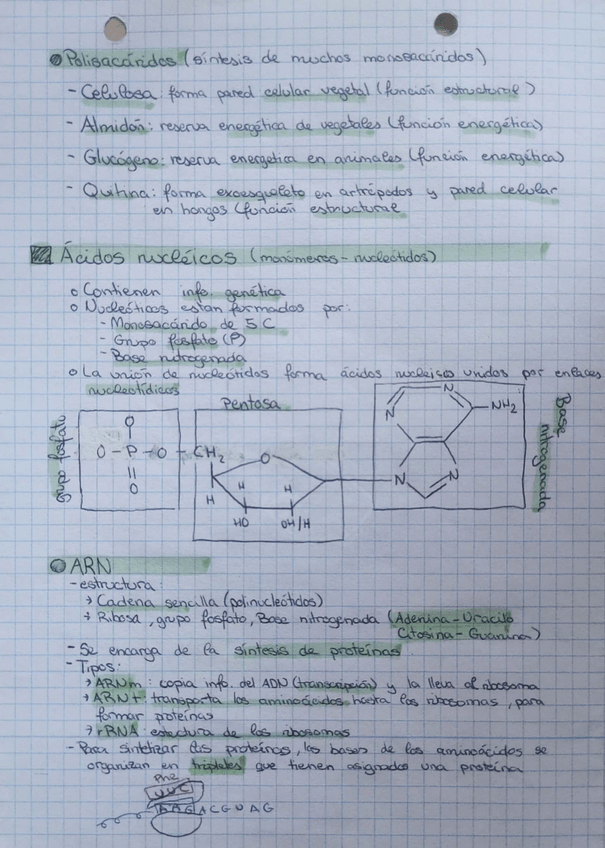 Polisacáridos (síntesis de muchos monosacáridos)
- Celulosa: forma pared celular vegetal (función estructural)
- Almidón: reserva energética de vegetales (función energética)
- Glucógeno: reserva energetica en animales (función energética)
- Quitina: forma exoesqueleto en artrópodos y pared celular
en hongos (función estructural
Ácidos nucléicos (monómeros - nucleótidos)
o Contienen info. genética
o Nucleóticos estan formados por:
- Monosacárido de 5 C
- Grupo fosfato (P)
- Base nitrogenada
o La unión de nucleótidos forma ácidos nucleicos unidos por enlaces
nucleotídicos
grupo fosfato
Pentosa
Base nitrogenada
O
O - P - O - CH2
O
O
H
H
H
HO
OH/H
N
N
NH2
N
N
ARN
- estructura:
→ Cadena sencilla (polinucleótidos)
→ Ribosa, grupo fosfato, Base nitrogenada (Adenina - Uracilo
Citosina - Guanina)
- Se encarga de la síntesis de proteínas
- Tipos:
→ ARNm: copia info. del ADN (transcripción) y la lleva al ribosoma
→ ARNt: transporta los aminoácidos hasta los ribosomas, para
formar proteínas
→ rRNA: estructura de los ribosomas
- Para sintetizar las proteínas, las bases de los aminoácidos se
organizan en tripletes que tienen asignados una proteína
Phe
UUC
AAGACGUAG